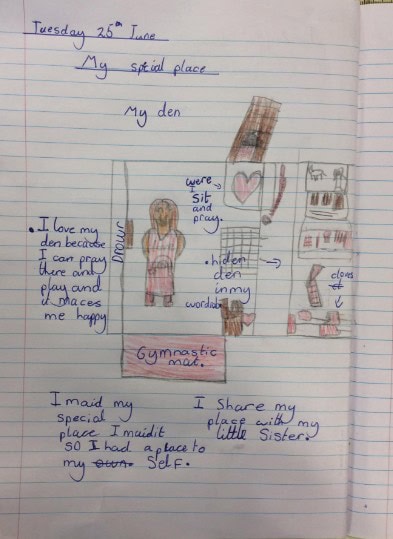 Tuesday 25th June
My special place
My den
were
I
sit
and
pray.
• I love my
den because
I can pray
there and
play and
it maces
me happy
Drowr
• hiden
den
in my
wordrob
clovs
Gymnastic
mat.
I maid my
special
place I maid it
so I had a place to
my own. Self.
I Share my
place with my
little Sister.